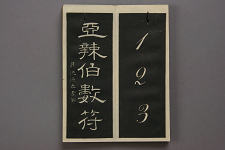 亞辣伯數符
1
2
3